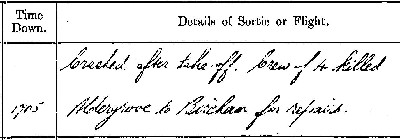 Time Down.
Details of Sortie or Flight.
Crashed after take off. Crew of 4 killed
1705 Aldergrove to Bircham for repairs.